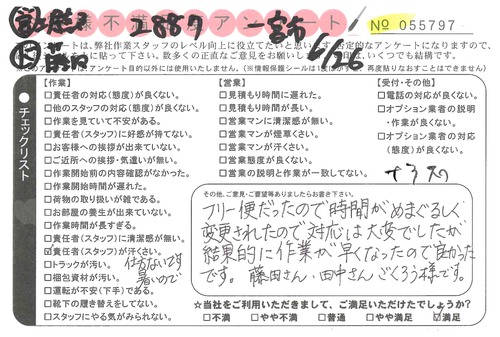 お客様不満足度アンケート
2887 一宮市 6/26
No 055797
アンケートは、弊社作業スタッフのレベル向上に役立てたいと思います。否定的なアンケートになりますので、
に貼って下さい。数多くの正直なご意見をお願い致します。いくつでも結構です。
アンケート目的以外には使用いたしません。
チェックリスト
【作業】
□責任者の対応(態度)が良くない。
□他のスタッフの対応(態度)が良くない。
□作業を見ていて不安がある。
□責任者(スタッフ)に好感が持てない。
□お客様への挨拶が出来ていない。
□ご近所への挨拶・気遣いが無い。
□作業開始前の内容確認がなかった。
□作業開始時間が遅れた。
□荷物の取り扱いが雑である。
□お部屋の養生が出来ていない。
□作業時間が長すぎる。
□責任者(スタッフ)に清潔感が無い。
☑責任者(スタッフ)が汗くさい。
□トラックが汚い。
□梱包資材が汚い。
□運転が不安(下手)である。
□靴下の履き替えをしてない。
□スタッフにやる気がみられない。
仕方ないです
暑いので
【営業】
□見積もり時間に遅れた。
□見積もり時間が長い。
□営業マンに清潔感が無い。
□営業マンが煙草くさい。
□営業マンが汗くさい。
□営業態度が良くない。
□営業の説明と作業が一致してない。
【受付・その他】
□電話の対応が良くない。
□オプション業者の説明
・作業が良くない。
□オプション業者の対応
(態度)が良くない。
その他、ご意見・ご要望等ありましたらお書き下さい。
フリー便だったので時間がめまぐるしく
変更されたので対応は大変でしたが
結果的に作業が早くなったので良かった
です。藤田さん、田中さん ごくろう様です。
★当社をご利用いただきまして、ご満足いただけたでしょうか?
□不満 □やや不満 □普通 □やや満足 ☑満足